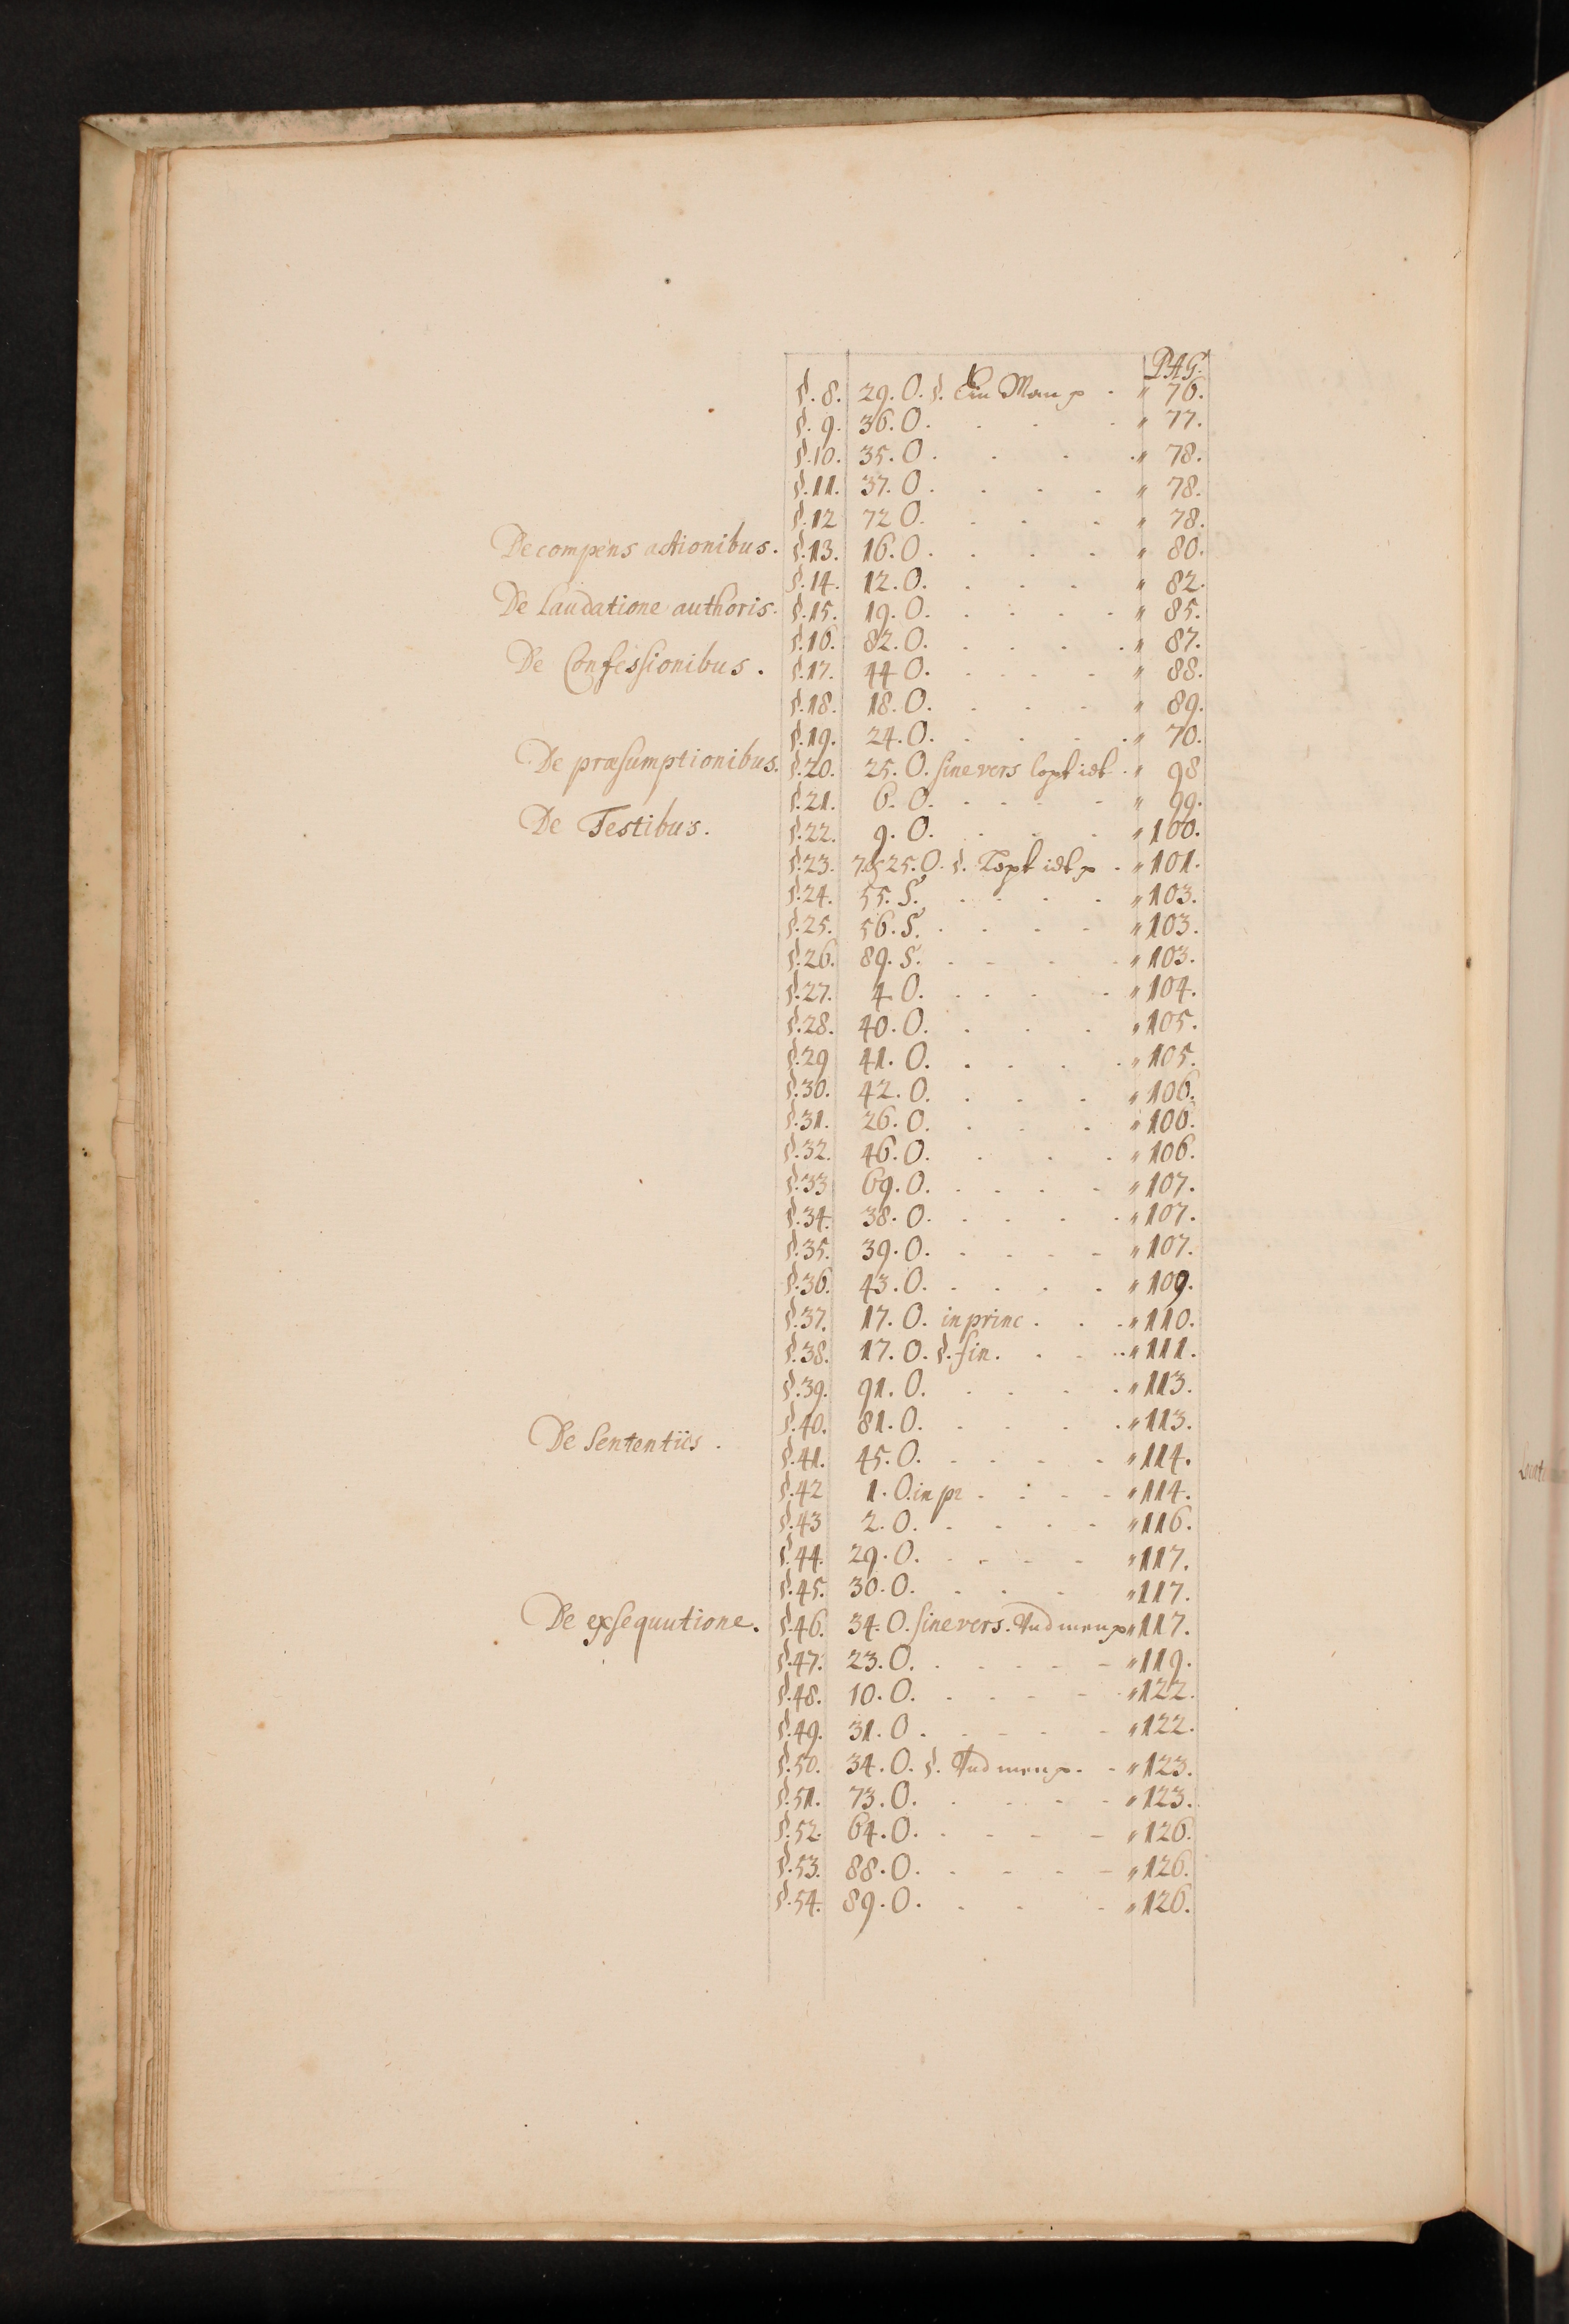 PAG.
§. 8. 29. O. §. Ein Man p . " 76.
§. 9. 36. O. . . . " 77.
§. 10. 35. O. . . . " 78.
§. 11. 37. O. . . . " 78.
§. 12 72 O. . . . " 78.
De compens actionibus. §. 13. 16. O. . . . " 80.
§. 14. 12. O. . . . " 82.
De laudatione authoris. §. 15. 19. O. . . . " 85.
§. 16. 82. O. . . . " 87.
De Confessionibus. §. 17. 44 O. . . . " 88.
§. 18. 18. O. . . . " 89.
§. 19. 24. O. . . . " 70.
De præsumptionibus. §. 20. 25. O. sine vers " 98
§. 21. 6. O. . . . " 99.
De Testibus. §. 22. 9. O. . . . " 100.
§. 23. 7. & 25. O. §. " 101.
§. 24. 55. S. . . . " 103.
§. 25. 56. S. . . . " 103.
§. 26. 89. S. . . . " 103.
§. 27. 4. O. . . . " 104.
§. 28. 40. O. . . . " 105.
§. 29 41. O. . . . " 105.
§. 30. 42. O. . . . " 106.
§. 31. 26. O. . . . " 106.
§. 32. 46. O. . . . " 106.
§. 33 69. O. . . . " 107.
§. 34. 38. O. . . . " 107.
§. 35. 39. O. . . . " 107.
§. 36. 43. O. . . . " 109.
§. 37. 17. O. in princ . . . " 110.
§. 38. 17. O. §. fin. . . . " 111.
§. 39. 91. O. . . . " 113.
§. 40. 81. O. . . . " 113.
De Sententiis. §. 41. 45. O. . . . " 114.
§. 42 1. O. in pr . . . " 114.
§. 43 2. O. . . . " 116.
§. 44. 29. O. . . . " 117.
§. 45. 30. O. . . . " 117.
De exsequutione. §. 46. 34. O. sine vers. " 117.
§. 47. 23. O. . . . " 119.
§. 48. 10. O. . . . " 122.
§. 49. 31. O. . . . " 122.
§. 50. 34. O. §. " 123.
§. 51. 73. O. . . . " 123.
§. 52. 64. O. . . . " 126.
§. 53. 88. O. . . . " 126.
§. 54. 89. O. . . . " 126.